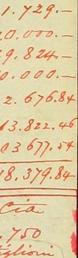 1.729.—
0.000.—
9.824.—
0.000.—
2.676.84
13.822.46
03677.54
18.379.84
cia
.750